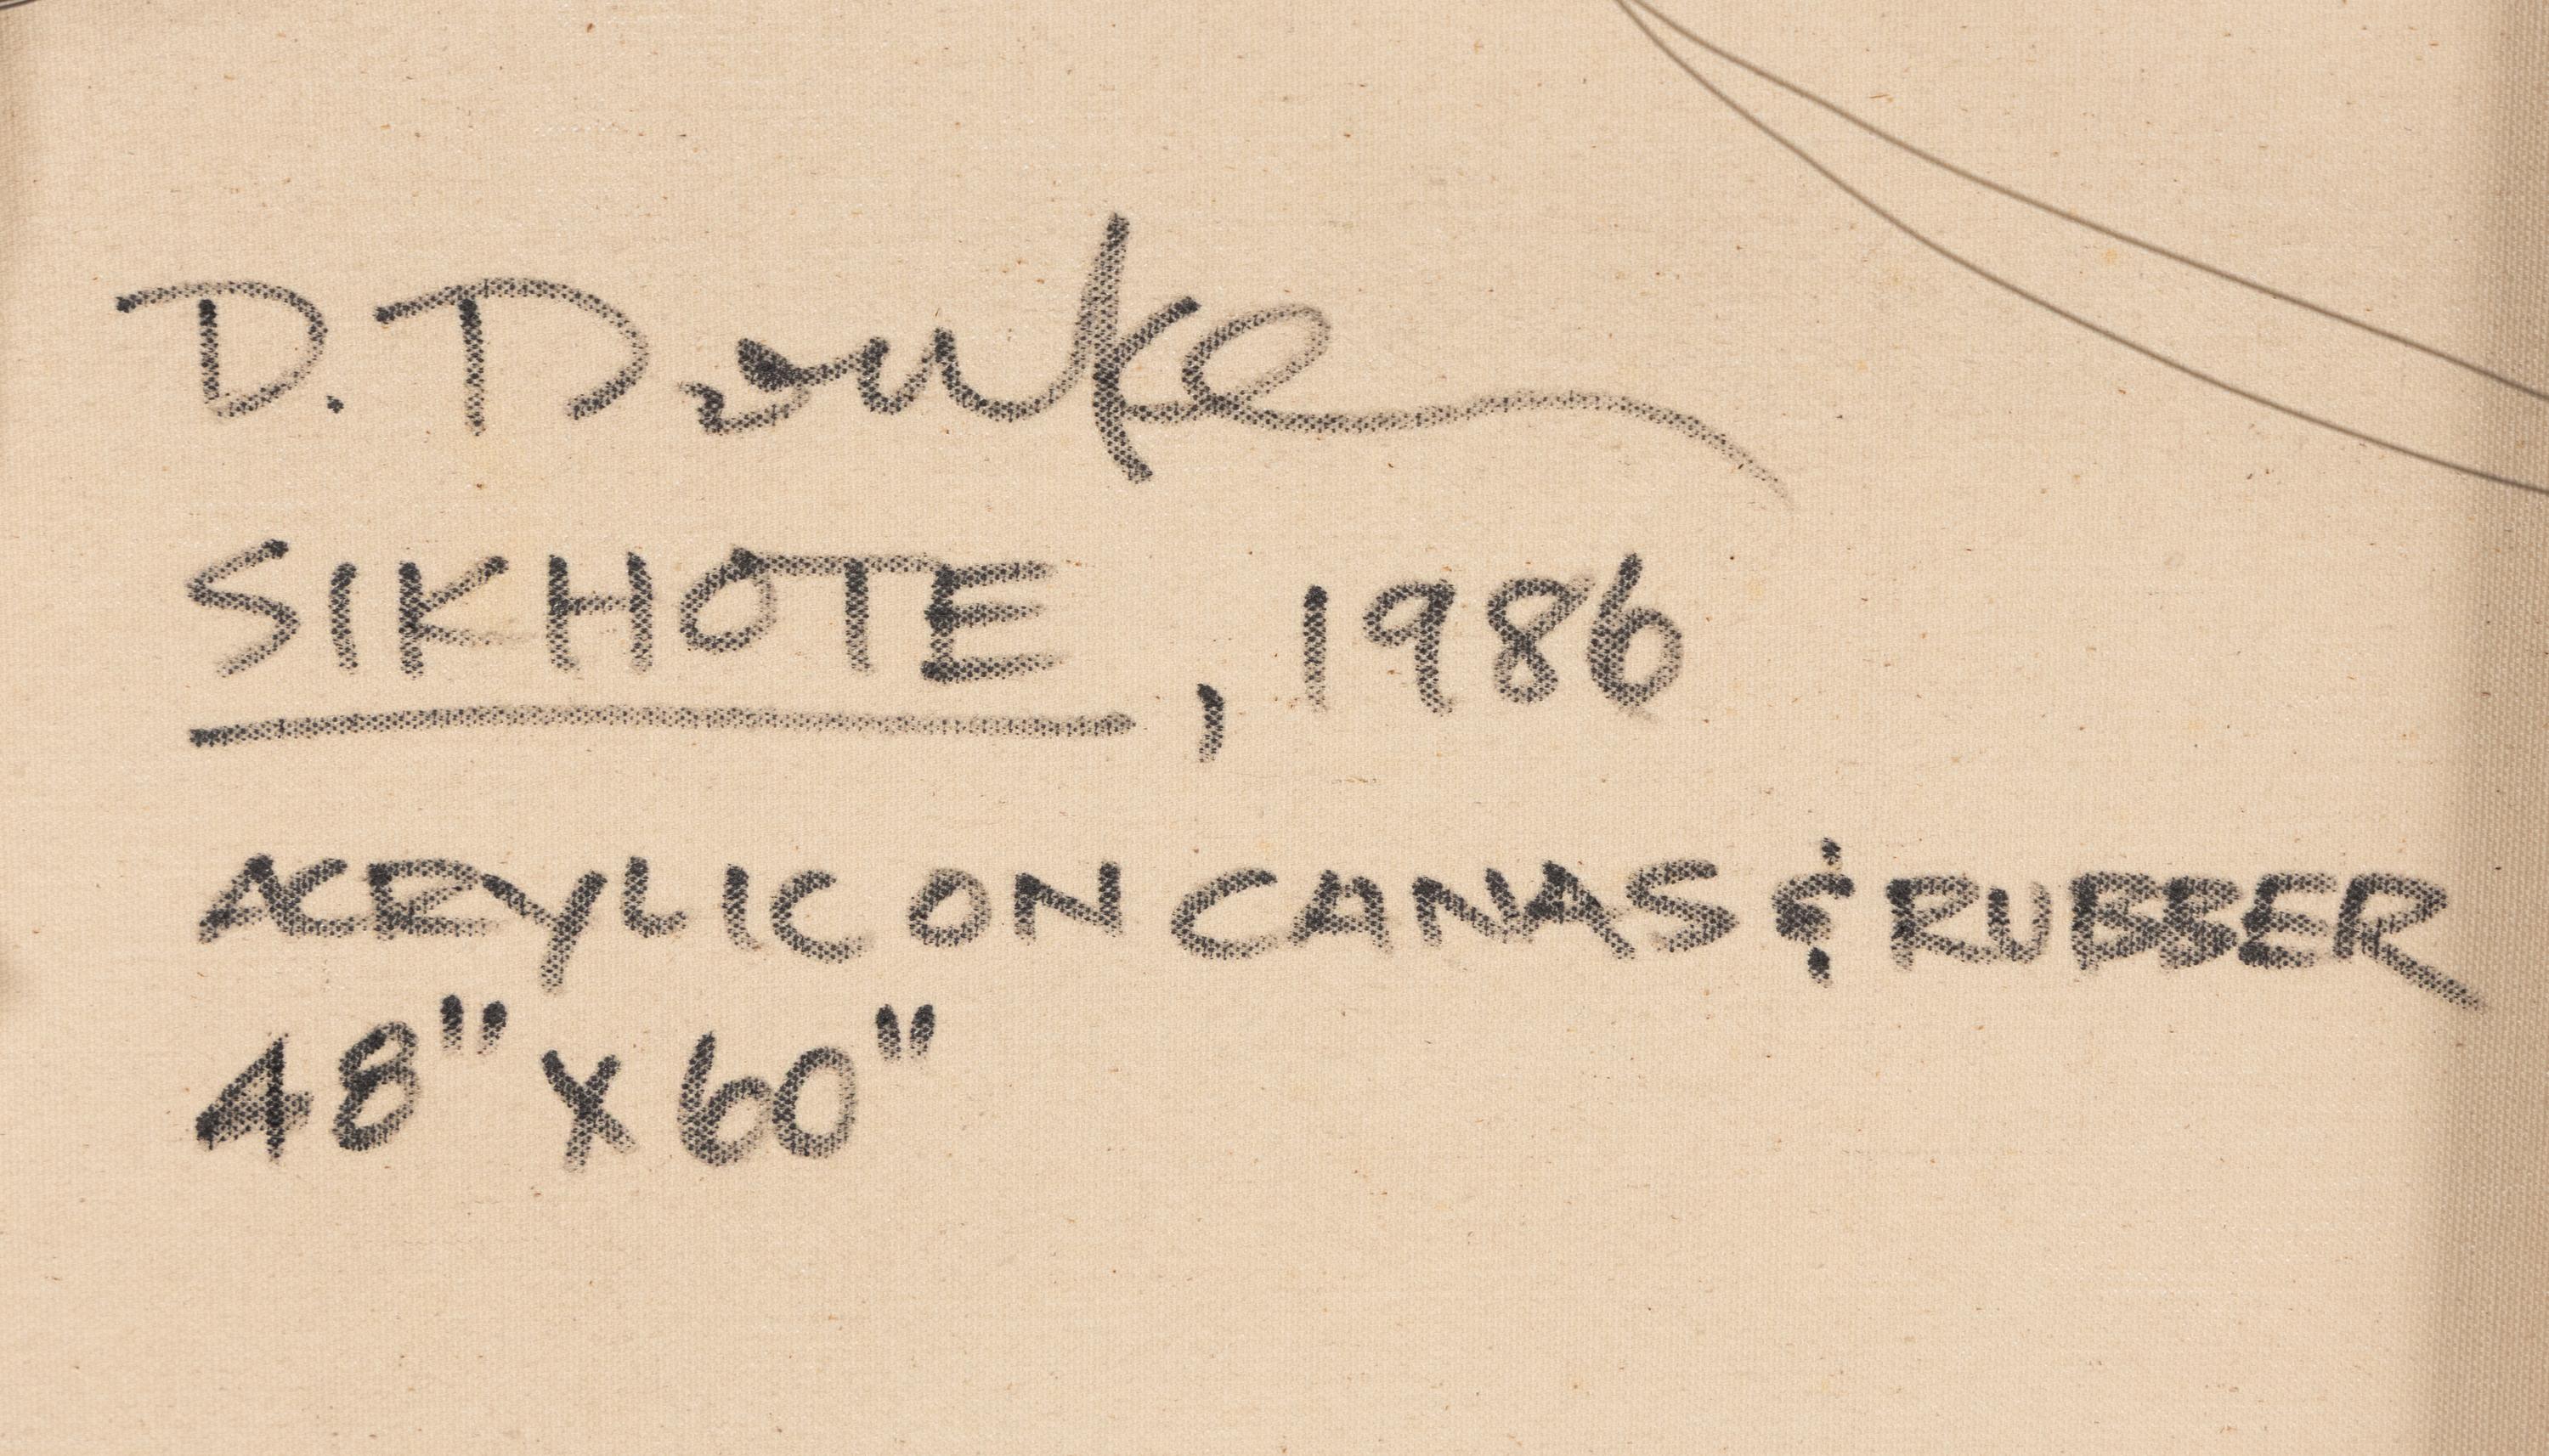 D. Douke
SIKHOTE, 1986
ACRYLIC ON CANAS & RUBBER
48" X 60"